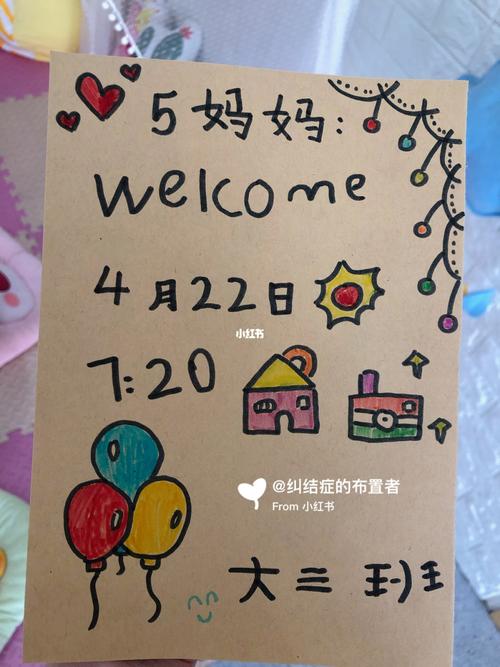 5妈妈:
Welcome
4月22日
小红书
7:20
@纠结症的布置者
From 小红书
大三班